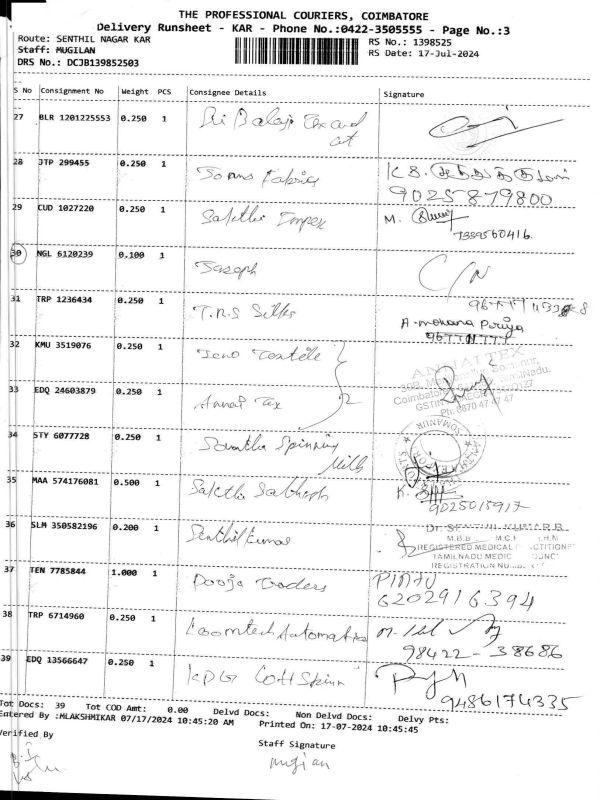 THE PROFESSIONAL COURIERS, COIMBATORE
Delivery Runsheet - KAR - Phone No.:0422-3505555 - Page No.:3
Route: SENTHIL NAGAR KAR RS No.: 1398525
Staff: MUGILAN RS Date: 17-Jul-2024
DRS No.: DCJB139852503
S No Consignment No Weight PCS Consignee Details Signature
27 BLR 1201225553 0.250 1 Sri Balaji
28 JTP 299455 0.250 1 Fabrics K S.
9025879800
29 CUD 1027220 0.250 1 Sakthi Impex M.
7339560416.
30 NGL 6120239 0.100 1 Joseph C/N
31 TRP 1236434 0.250 1 T.R.S Silks
A-mohana Priya
32 KMU 3519076 0.250 1 Jeno Textile
33 EDQ 24603879 0.250 1 Annai Tex 2
ANNAI TEX
34 STY 6077728 0.250 1 Spinning
Mills
SOMANUR
35 MAA 574176081 0.500 1 Sakthi K.
9025015917
36 SLM 350582196 0.200 1 Senthilkumar
REGISTERED MEDICAL
TAMILNADU MEDIC
REGISTRATION
37 TEN 7785844 1.000 1 Pooja Traders PINTU
6202916394
38 TRP 6714960 0.250 1 Loomtech Automatics
98422 - 38686
39 EDQ 13566647 0.250 1 KPG Cott Spinn
9486174335
Tot Docs: 39 Tot COD Amt: 0.00 Delvd Docs: Non Delvd Docs: Delvy Pts:
Entered By :MLAKSHMIKAR 07/17/2024 10:45:20 AM Printed On: 17-07-2024 10:45:45
Verified By
Staff Signature
mugilan